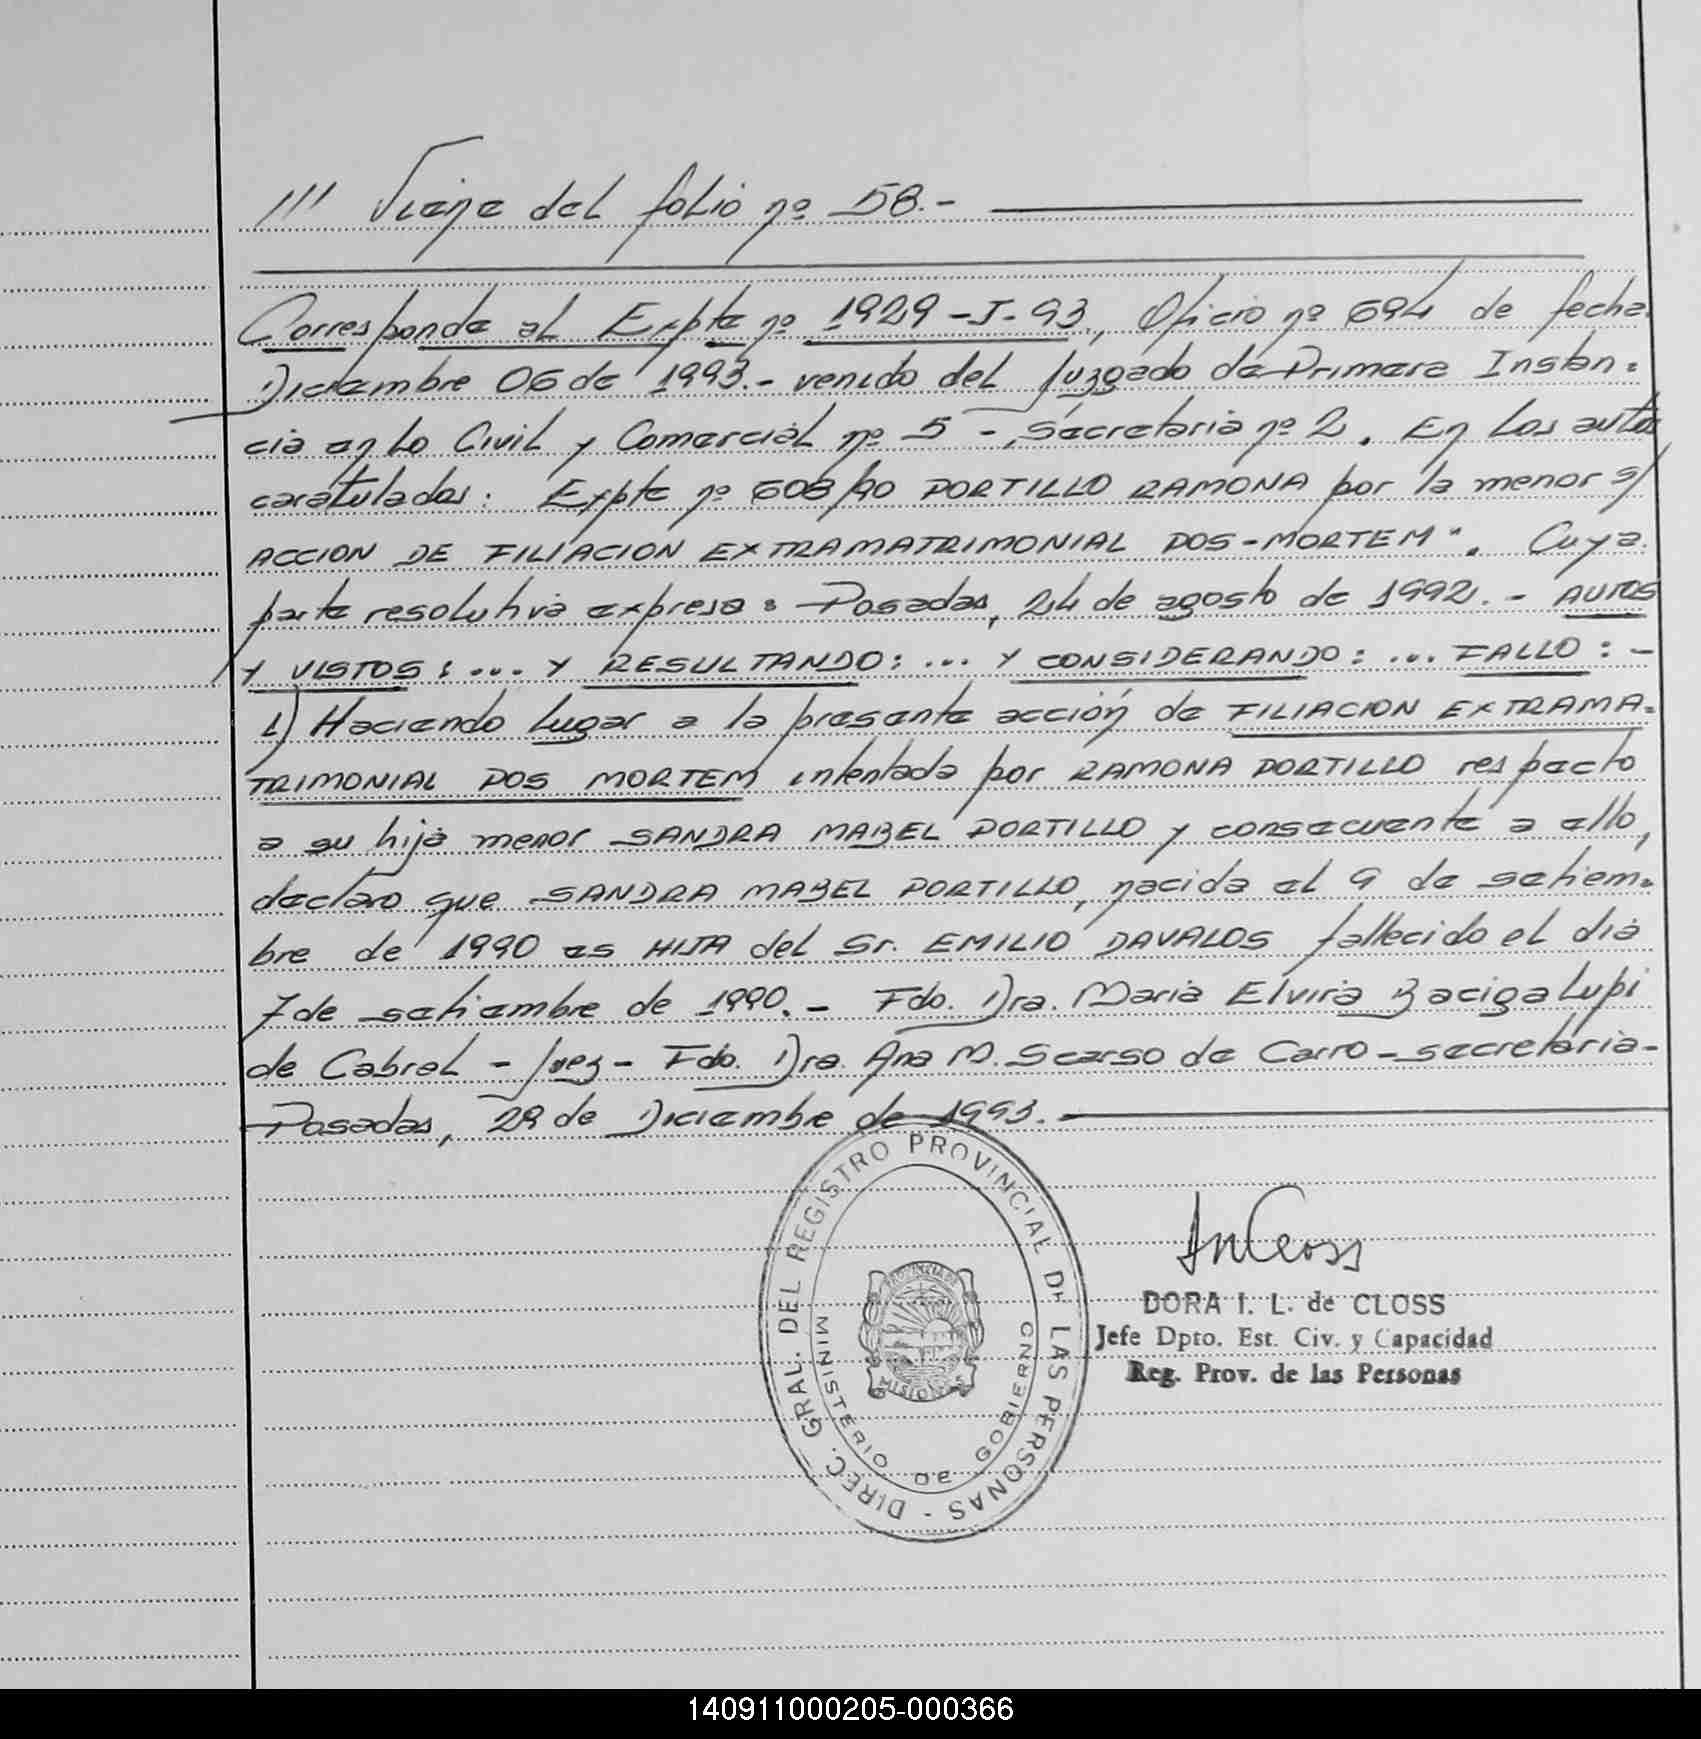 /// Viene del folio nº 58.-
Corresponde al Expte nº 1929-J-93, Oficio nº 694 de fecha
Diciembre 06 de 1993.- venido del Juzgado de Primera Instan=
cia en lo Civil y Comercial nº 5 - Secretaria nº 2. En los autos
caratulados: Expte nº 608/90 PORTILLO RAMONA por la menor s/
ACCION DE FILIACION EXTRAMATRIMONIAL POS-MORTEM". Cuya
parte resolutiva expresa: Posadas, 24 de agosto de 1992.- AUTOS
Y VISTOS: ... Y RESULTANDO: ... Y CONSIDERANDO: ... FALLO: -
1) Haciendo lugar a la presente acción de FILIACION EXTRAMA=
TRIMONIAL POS MORTEM intentada por RAMONA PORTILLO respecto
a su hija menor SANDRA MABEL PORTILLO y consecuente a ello,
declaro que SANDRA MABEL PORTILLO, nacida el 9 de setiem=
bre de 1990 es HIJA del Sr. EMILIO DAVALOS fallecido el dia
7 de setiembre de 1990.- Fdo. Dra. Maria Elvira Bacigalupi
de Cabral - Juez - Fdo. Dra. Ana M. Scarso de Carro - secretaria -
Posadas, 28 de Diciembre de 1993.-
DIREC. GRAL. DEL REGISTRO PROVINCIAL DE LAS PERSONAS -
MINISTERIO DE GOBIERNO
PROVINCIA DE
MISIONES
DORA I. L. de CLOSS
Jefe Dpto. Est. Civ. y Capacidad
Reg. Prov. de las Personas
140911000205-000366